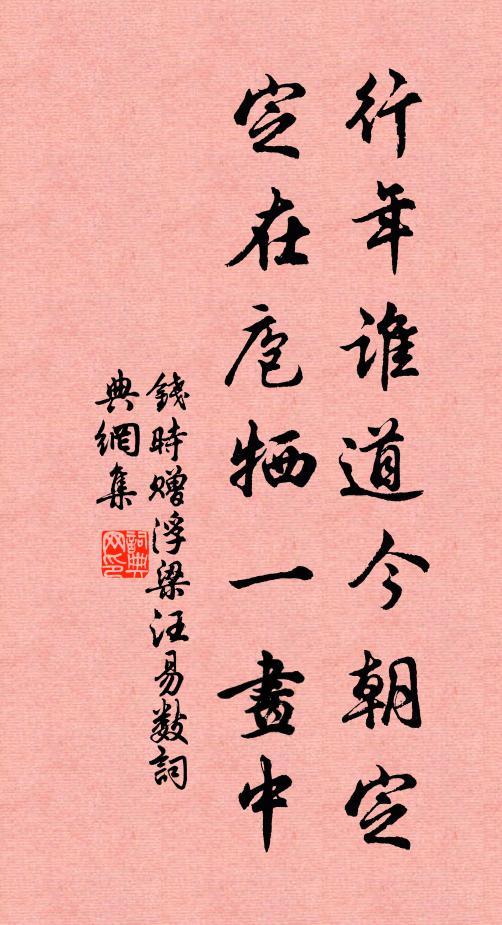 行年誰道今朝定
定在庖牺一畫中
錢時贈浮梁汪易數詞
典網集
詞典
网印